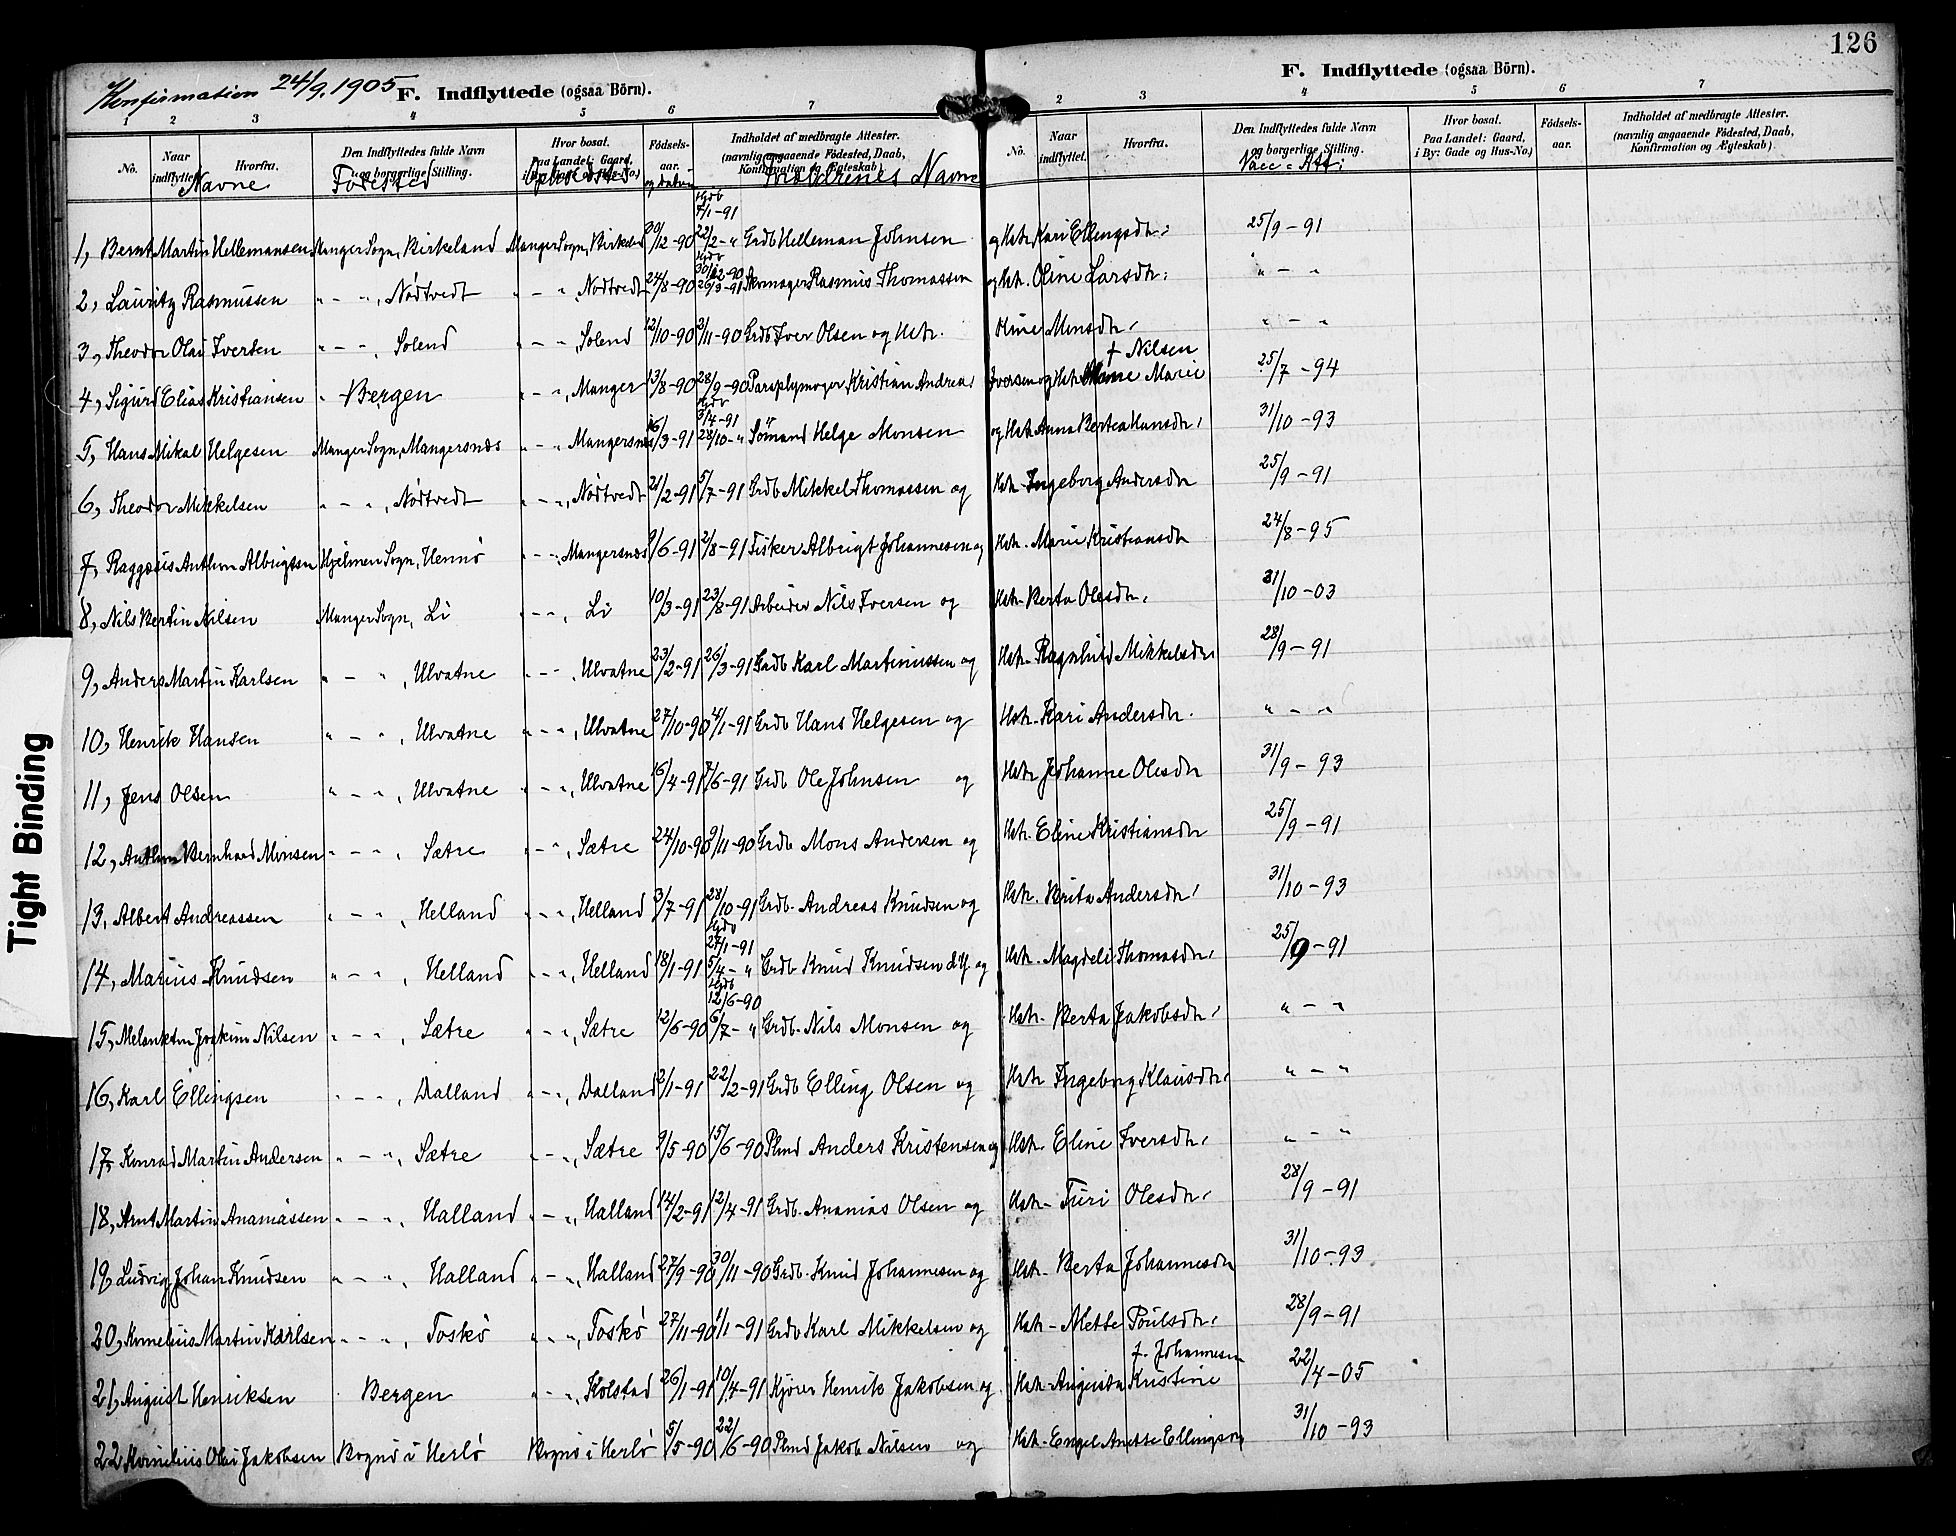 126
Konfirmation 24/9. 1905
F. Indflyttede (ogsaa Börn).
F. Indflyttede (ogsaa Börn).
1 2 3 4 5 6 7
2 3 4 5 6 7
No. Naar indflyttet. Hvorfra. Den Indflyttedes fulde Navn og borgerlige Stilling. Hvor bosat. Paa Landet: Gaard, i By: Gade og Hus-No.) Födsels-aar. Indholdet af medbragte Attester. (navnlig angaaende Födested, Daab, Konfirmation og Ægteskab).
No. Naar indflyttet. Hvorfra. Den Indflyttedes fulde Navn og borgerlige Stilling. Hvor bosat. Paa Landet: Gaard, i By: Gade og Hus-No.) Födsels-aar. Indholdet af medbragte Attester. (navnlig angaaende Födested, Daab, Konfirmation og Ægteskab).
Navne Fødested Opholdssted og datum Forældrenes Navne Vacc-Att:
1, Bernt Martin Hellemansen Manger Sogn, Birkeland Manger Sogn, Birkeland 30/12-90 Hjdb 4/1-91 22/2-" Grdb Helleman Johnsen og Hstr. Kari Ellingsdtr: 25/9-91
2, Lauritz Rasmussen " - ", Nødtvedt " - ", Nødtvedt 24/8-90 Hjdb 30/12-90 26/3-91 Skomager Rasmus Thomassen og Hstr. Oline Larsdtr: " - "
3, Theodor Olai Iversen " - ", Solend " - ", Solend 12/10-90 2/11-90 Grdb Iver Olsen og Hstr. Oline Monsdtr, " - "
4, Sigurd Elias Kristiansen " Bergen " - ", Manger 13/8-90 28/9-90 Paraplymager Kristian Andreas Iversen og Hstr. Marie f. Nilsen 25/7-94
5, Hans Mikal Helgesen Manger Sogn, Mangersnæs " - " Mangersnæs 16/3-91 Hjdb 3/4-91 28/10-" Sømand Helge Monsen og Hstr. Anna Bertea Hansdtr, 31/10-93
6, Theodor Mikkelsen " - ", Nødtvedt " - ", Nødtvedt 21/2-91 5/7-91 Grdb Mikkel Thomassen og Hstr. Ingeborg Andersdtr 25/9-91
7, Raggæus Anthon Albrigtsen Hjelmen Sogn, Hernø " - ", Mangersnæs 9/6-91 2/8-91 Fisker Albrigt Johannesen og Hstr. Marie Kristiansdtr 24/8-95
8, Nils Bertin Nilsen Manger Sogn, Li " - ", Li 10/3-91 23/8-91 Arbeider Nils Iversen og Hstr. Berta Olesdtr, 31/10-03
9, Anders Martin Karlsen " - ", Ulvatne " - ", Ulvatne 23/2-91 26/3-91 Grdb Karl Martinussen og Hstr. Ragnhild Mikkelsdtr, 28/9-91
10, Henrik Hansen " - ", Ulvatne " - ", Ulvatne 27/10-90 4/1-91 Grdb Hans Helgesen og Hstr. Kari Andersdtr. " - "
11, Jens Olsen " - ", Ulvatne " - ", Ulvatne 16/4-91 7/6-91 Grdb Ole Johnsen og Hstr. Johanne Olesdtr 31/9-93
12, Anthon Bernhard Monsen " - ", Sætre " - ", Sætre 24/10-90 9/11-90 Grdb Mons Andersen og Hstr. Eline Kristiansdtr 25/9-91
13. Albert Andreassen " - ", Helland " - ", Helland 3/7-91 28/10-91 Grdb. Andreas Knudsen og Hstr. Brita Andersdtr, 31/10-93
14, Marius Knudsen " - ", Helland " - ", Helland 18/1-91 Hjdb 27/1-91 5/4-" Grdb Knud Knudsen d.y. og Hstr. Magdeli Thomasdtr, 25/9-91
15, Melankton Joakim Nilsen " - ", Sætre " - ", Sætre 12/6-90 Hjdb 12/6-90 6/7-" Grdb. Nils Monsen og Hstr. Berta Jakobsdtr, " - "
16, Karl Ellingsen " - ", Dalland " - ", Dalland 2/1-91 22/2-91 Grdb Elling Olsen og Hstr Ingeborg Klausdtr, " - "
17, Konrad Martin Andersen " - ", Sætre " - ", Sætre 9/5-90 15/6-90 Plmd Anders Kristensen og Hstr. Eline Iversdtr, " - "
18, Arnt Martin Ananiassen " - ", Halland " - ", Halland 14/2-91 12/4-91 Grdb. Ananias Olsen og Hstr. Turi Olesdtr, 28/9-91
19, Ludvig Johan Knudsen " - ", Halland " - ", Halland 27/9-90 30/11-90 Grdb. Knud Johannesen og Hstr. Berta Johannesdtr 31/10-93
20, Kornelius Martin Karlsen " - ", Toskø " - ", Toskø 27/11-90 1/1-91 Grdb Karl Mikkelsen og Hstr. Mette Poulsdtr, 28/9-91
21, August Henriksen Bergen " - ", Holstad 26/1-91 10/4-91 Kjører Henrik Jakobsen og Hstr. Augusta Kristine f. Johannesen 22/4-05
22 Kornelius Olai Jakobsen Bognø i Herlø Bognø i Herlø 5/5-90 22/6-90 Plmd Jakob Nilsen og Hstr. Engel Anette Ellingsdtr 31/10-93
Tight Binding